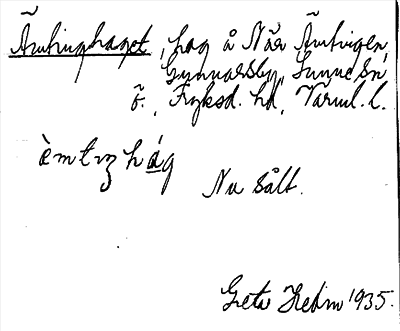 Ämtinghaget, hag å När Ämtvigen,
Gunnarsby, Sunne sn
ö., Fryksd. hd, Värml. l.
èmtɩŋ hág
Nu sått.
Greta Hedin 1935.